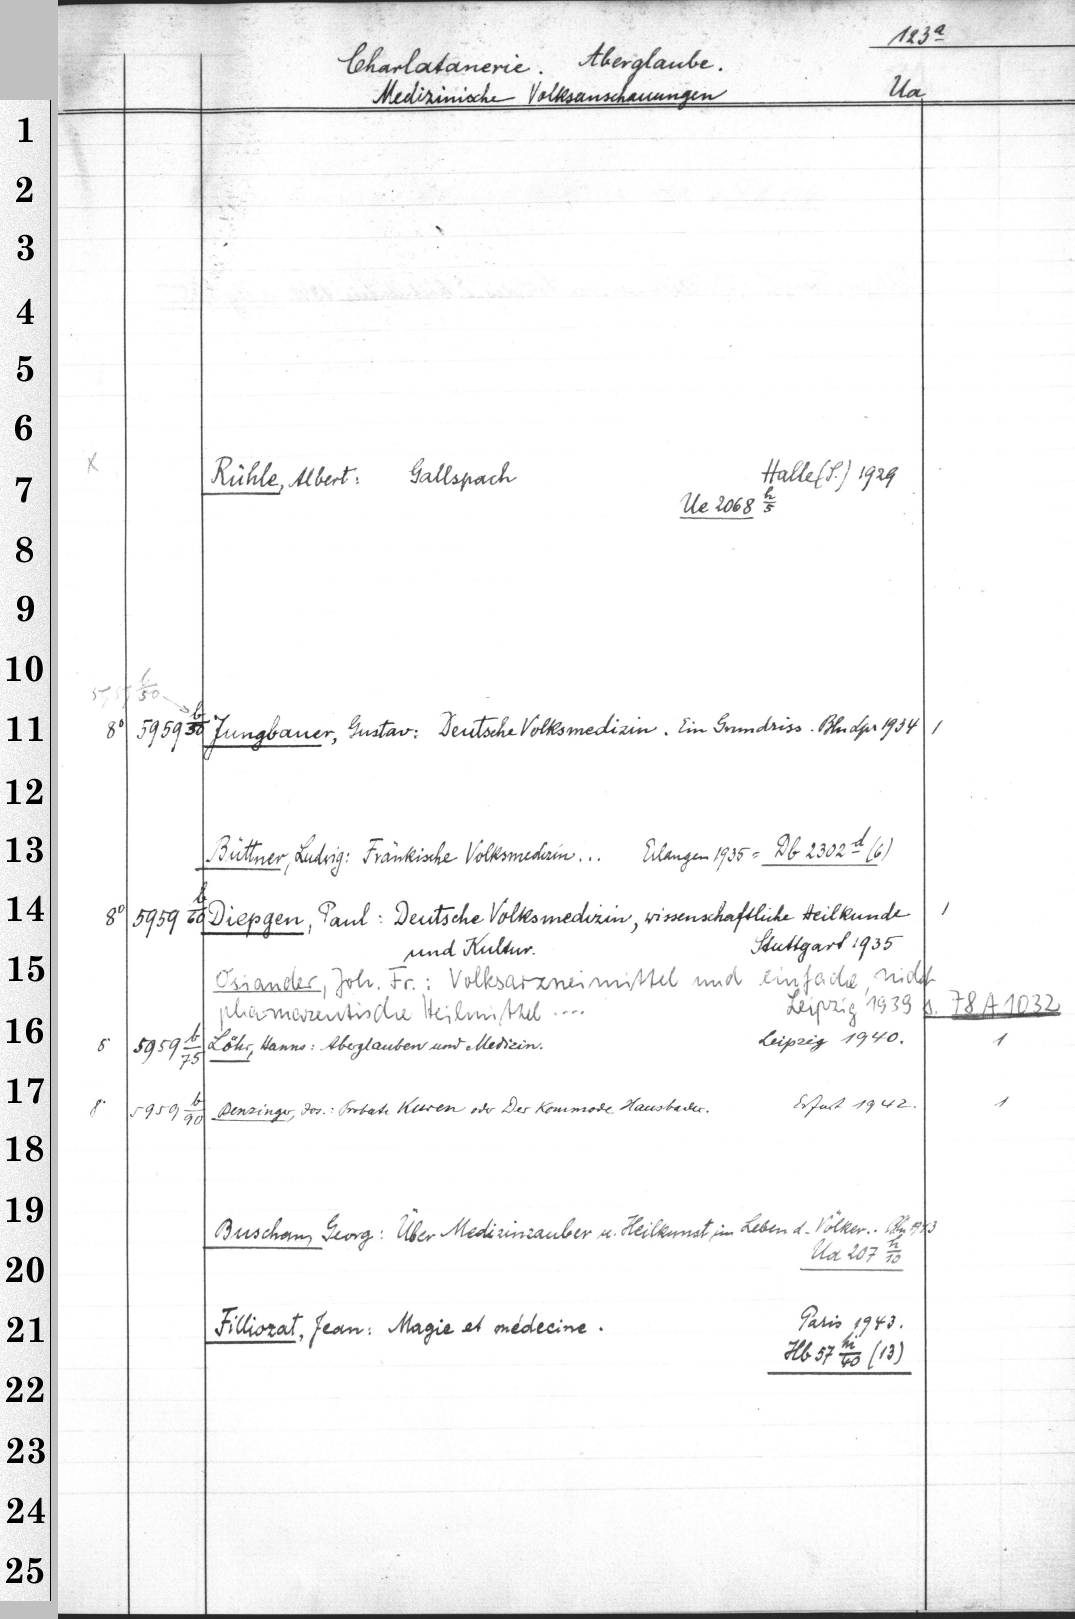 123a
Charlatanerie. Aberglaube.
Medizinische Volksanschauungen Ua
1
2
3
4
5
6
x
7 Rühle, Albert: Gallspach Halle (S.) 1929
Ue 2068 h/5
8
9
10
b/50
11 8° 5959 b/50 Jungbauer, Gustav: Deutsche Volksmedizin. Ein Grundriss. Bln Lpz 1934 1
12
13 Büttner, Ludwig: Fränkische Volksmedizin... Erlangen 1935 = Db 2302 d (6)
14 8° 5959 b/60 Diepgen, Paul: Deutsche Volksmedizin, wissenschaftliche Heilkunde 1
und Kultur. Stuttgart 1935
15 Osiander, Joh. Fr.: Volksarzneimittel und einfache, nicht
pharmazeutische Heilmittel .... Leipzig 1939 s. 78 A 1032
16 8° 5959 b/75 Löhr, Hanns: Aberglauben und Medizin. Leipzig 1940. 1
17 8° 5959 b/90 Denzinger, Jos.: Probate Kuren oder Der kommode Hausbader. Erfurt 1942. 1
18
19 Buschan, Georg: Über Medizinzauber u. Heilkunst im Leben d. Völker.. Bln
Ua 207 h/10
20
21 Filliozat, Jean: Magie et médecine. Paris 1943.
Hb 57 hi/40 (13)
22
23
24
25